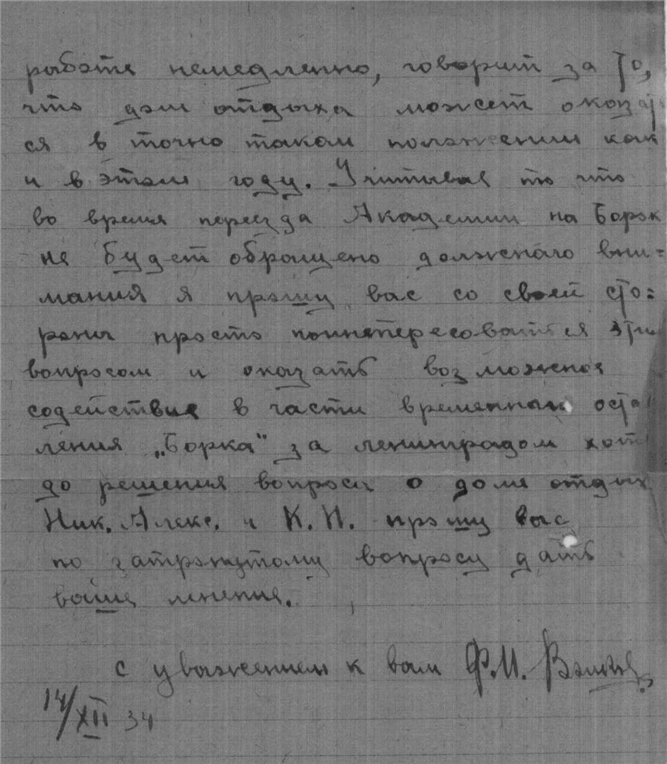 работе немедленно, говорит за то,
что дом отдыха может оказат
ся в точно таком положении как
и в этом году. Учитывая то что
во время переезда Академии на Борок
не будет обращено должнаго вни=
мания я прошу вас со своей сто=
роны просто поинтересоваться этим
вопросом и оказать возможное
содействие в части временнаго оста
ления „Борка" за ленинградом хотя
до решения вопроса о доме отдыха
Ник. Алекс. и К. И. прошу вас
по затронутому вопросу дать
ваше мнение.
с уважением к вам Ф.И.
14/XII 34